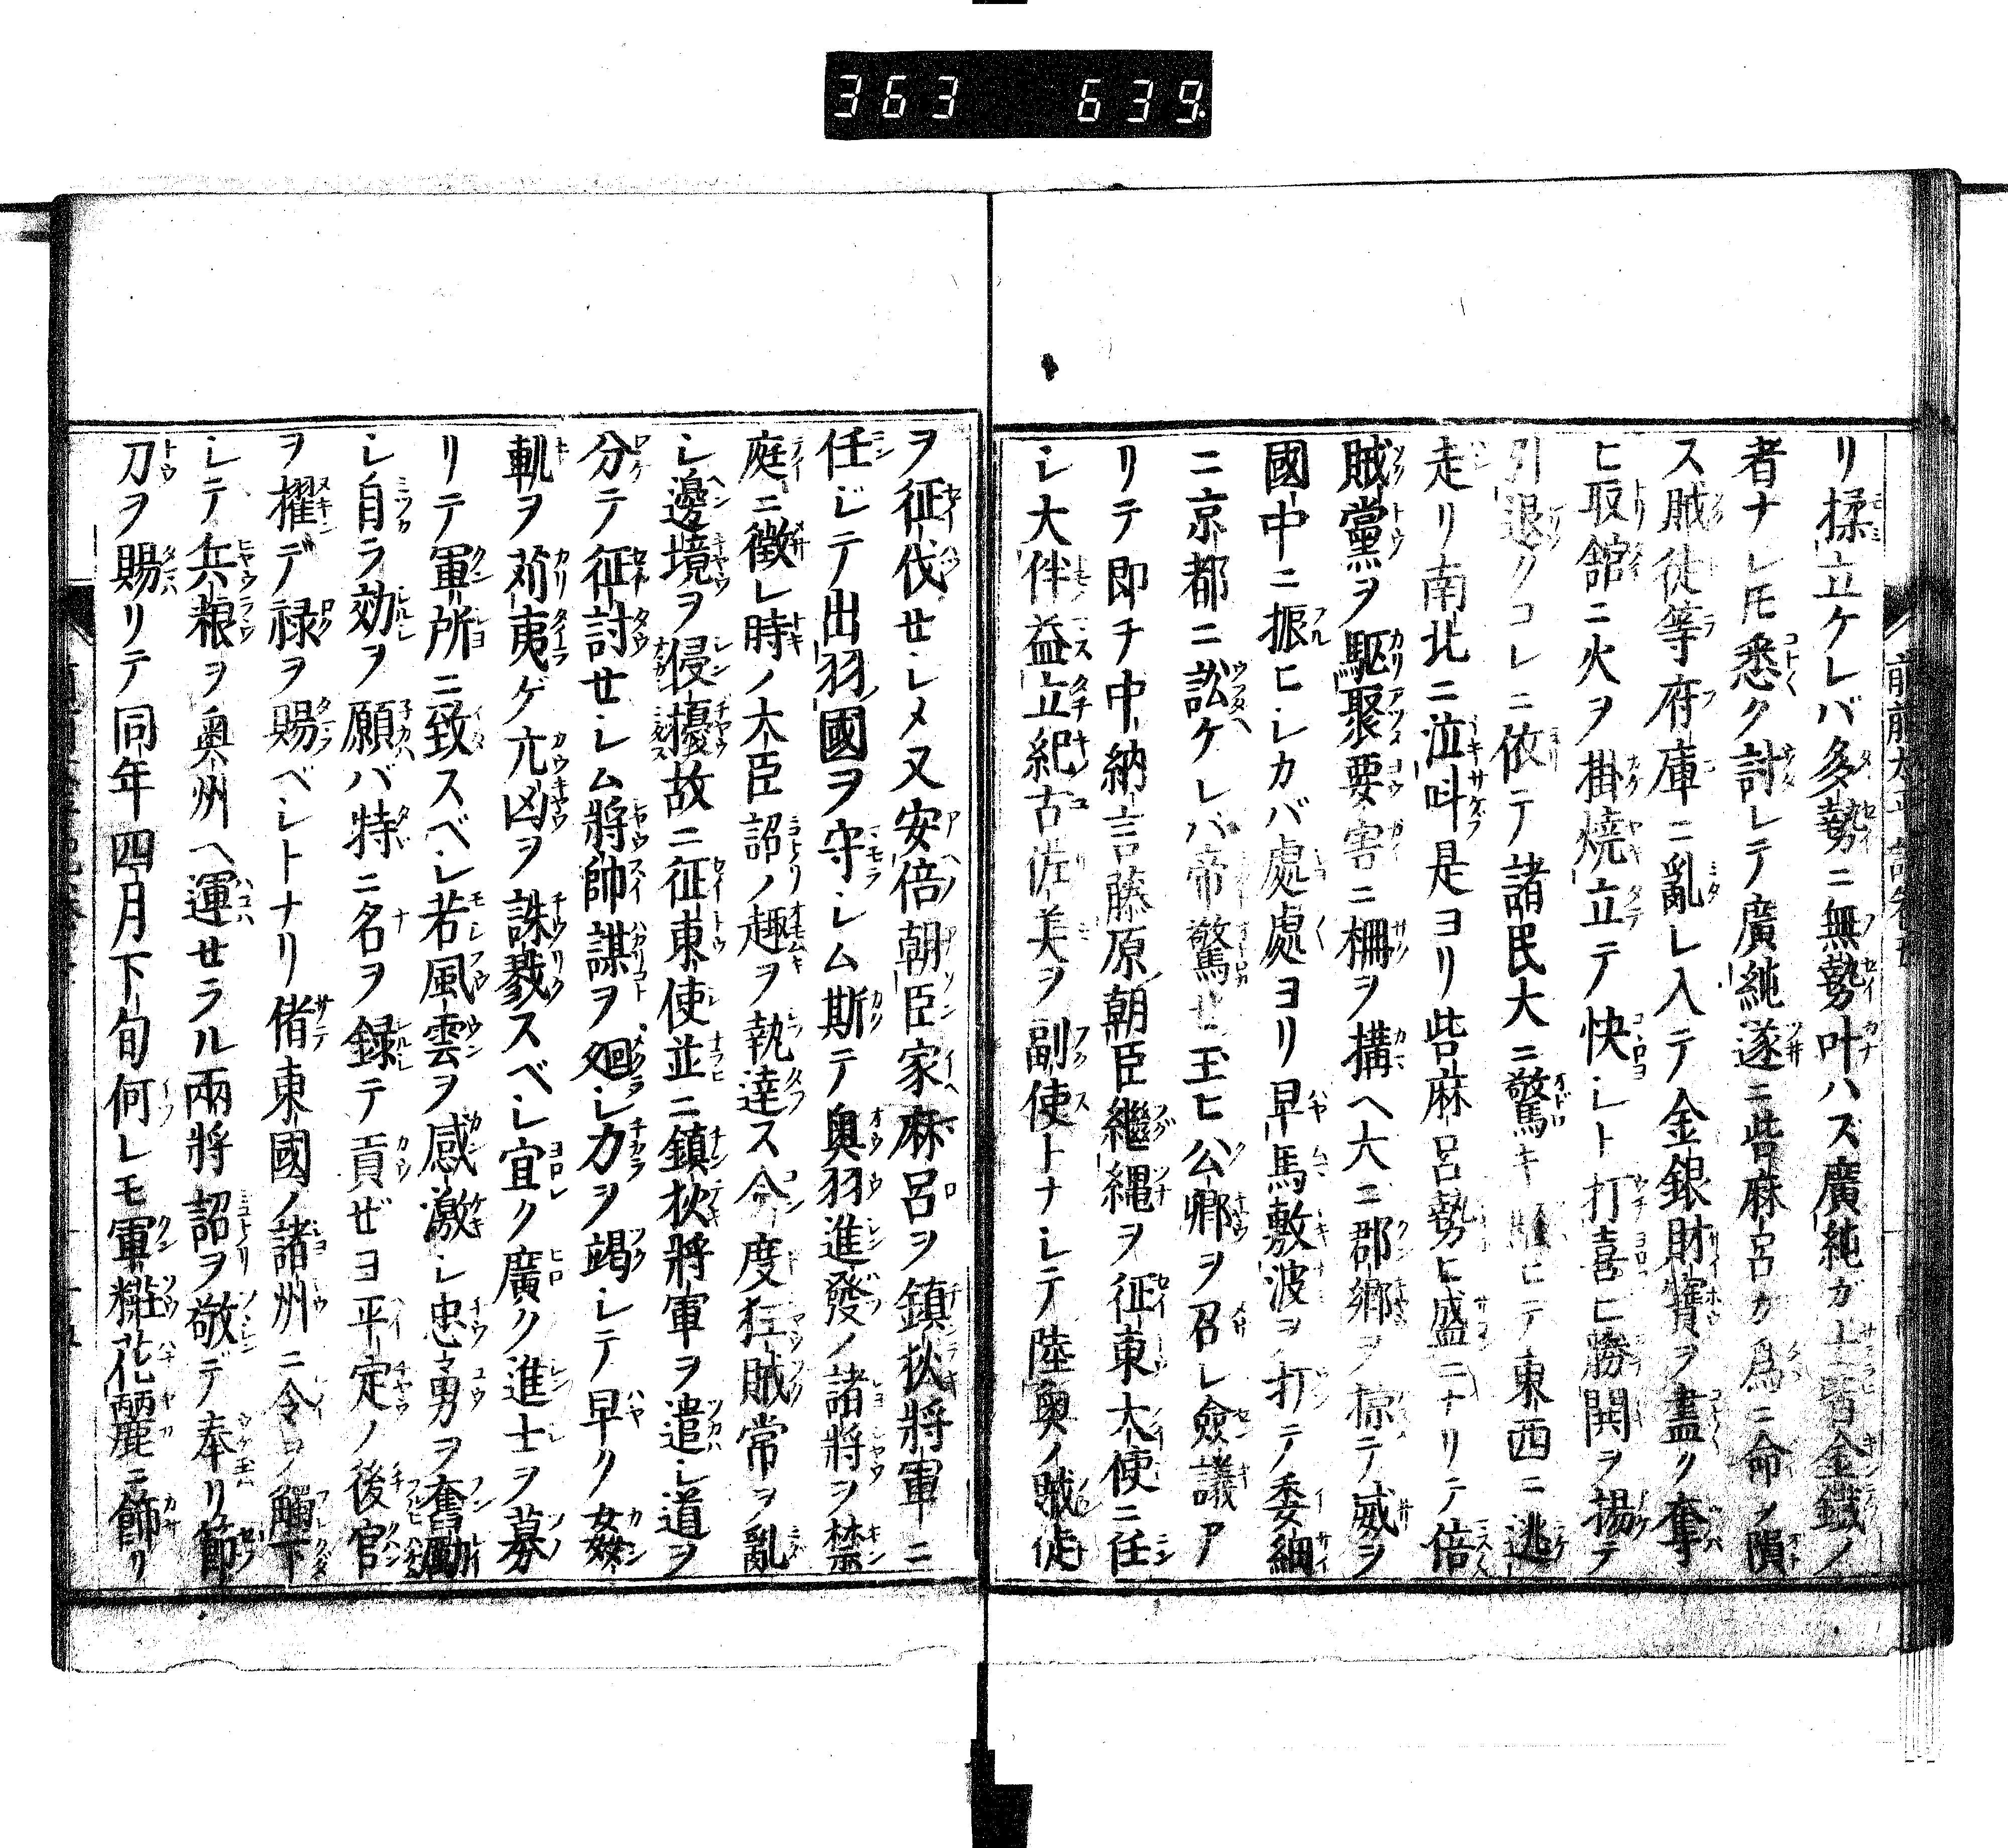 363 639
リ揉立ケレバ多勢ニ無勢叶ハズ廣純ガ士皆金鐵ノ
者ナレ𪜈悉ク計レテ廣純遂ニ呰麻呂カ爲ニ命ヲ隕
ス賊徒等府庫ニ亂レ入テ金銀財寳ヲ盡ク奪
ヒ取舘ニ火ヲ掛燒立テ快シト打喜ヒ勝閧ヲ揚テ
引退クコレニ依テ諸民大ニ驚キ ヒテ東西ニ逃
走リ南北ニ泣呌是ヨリ呰麻呂勢ヒ盛ニナリテ倍
賊黨ヲ駆聚要害ニ柵ヲ搆ヘ大ニ郡郷ヲ掠テ威ヲ
國中ニ振ヒシカバ處處ヨリ早馬敷波ヲ打テ委細
ニ京都ニ訟ケレバ帝驚セ玉ヒ公卿ヲ召レ僉議ア
リテ即チ中納言藤原朝臣繼縄ヲ征東大使ニ任
シ大伴益立紀古佐美ヲ副使トナシテ陸奥ノ賊徒
ヲ征伐せシメ又安倍朝臣家麻呂ヲ鎮狄將軍ニ
任ジテ出羽國ヲ守シム斯テ奥羽進發ノ諸將ヲ禁
庭ニ徴レ時ノ大臣詔ノ趣ヲ執達ス今度狂賊常ヲ亂
シ邊境ヲ侵擾故ニ征東使並ニ鎮狄將軍ヲ遣シ道ヲ
分テ征討せシム將帥謀ヲ廻シ力ヲ竭シテ早ク姦
軌ヲ苅夷ゲ亢凶ヲ誅戮スベシ宜ク廣ク進士ヲ募
リテ軍所ニ致スベシ若風雲ヲ感激シ忠勇ヲ奮勵
シ自ラ効ヲ願バ特ニ名ヲ録テ貢ゼヨ平定ノ後官
ヲ擢デ禄ヲ賜ベシトナリ偖東國ノ諸州ニ令ヲ觸下
シテ兵粮ヲ奥州ヘ運せラル兩將詔ヲ敬デ奉リ節
刀ヲ賜リテ同年四月下旬何レモ軍糚花麗ニ飾リ